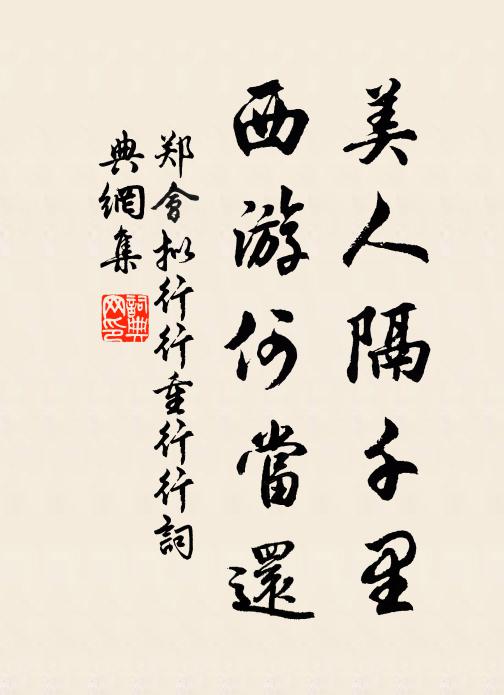 美人隔千里
西游何當還
郑會拟行行重行行詞
典網集
詞典
网印